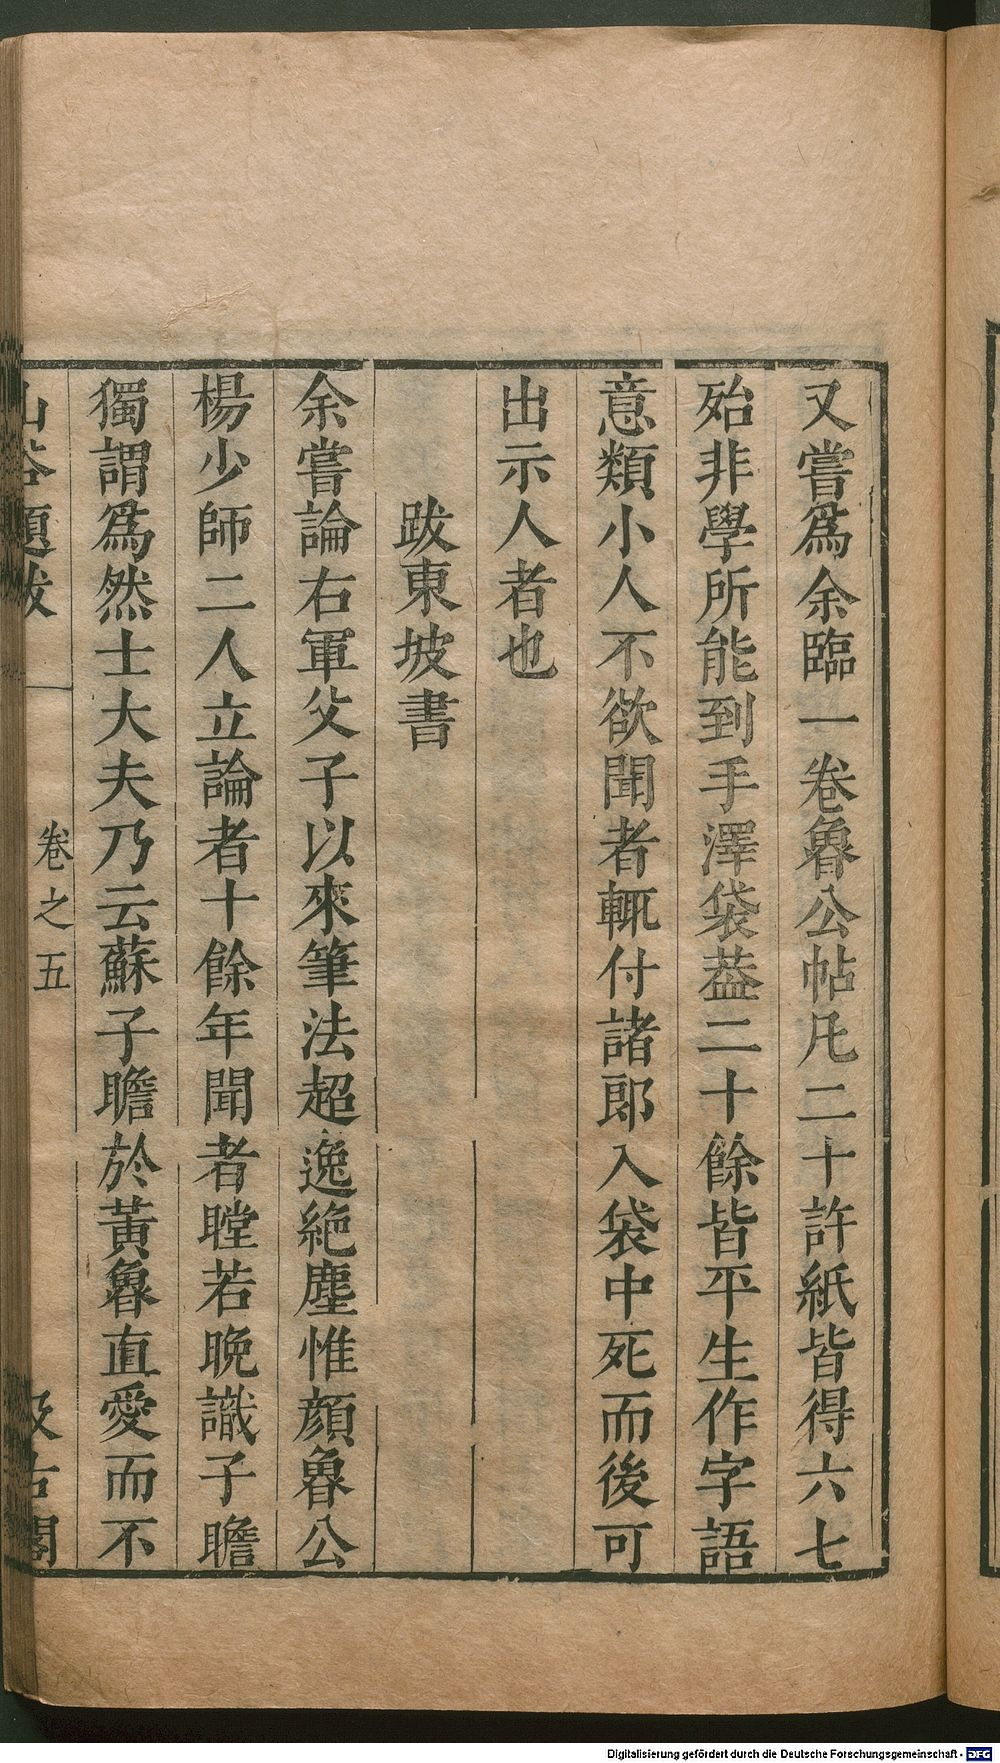 又嘗爲余臨一卷魯公帖凡二十許紙皆得六七
殆非學所能到手澤袋葢二十餘皆平生作字語
意類小人不欲聞者輒付諸郎入袋中死而後可
出示人者也
跋東坡書
余嘗論右軍父子以來筆法超逸絕塵惟顔魯公
楊少師二人立論者十餘年聞者瞠若晚識子瞻
獨謂爲然士大夫乃云蘇子瞻於黃魯直愛而不
山谷題跋 卷之五 汲古閣
Digitalisierung gefördert durch die Deutsche Forschungsgemeinschaft - DFG